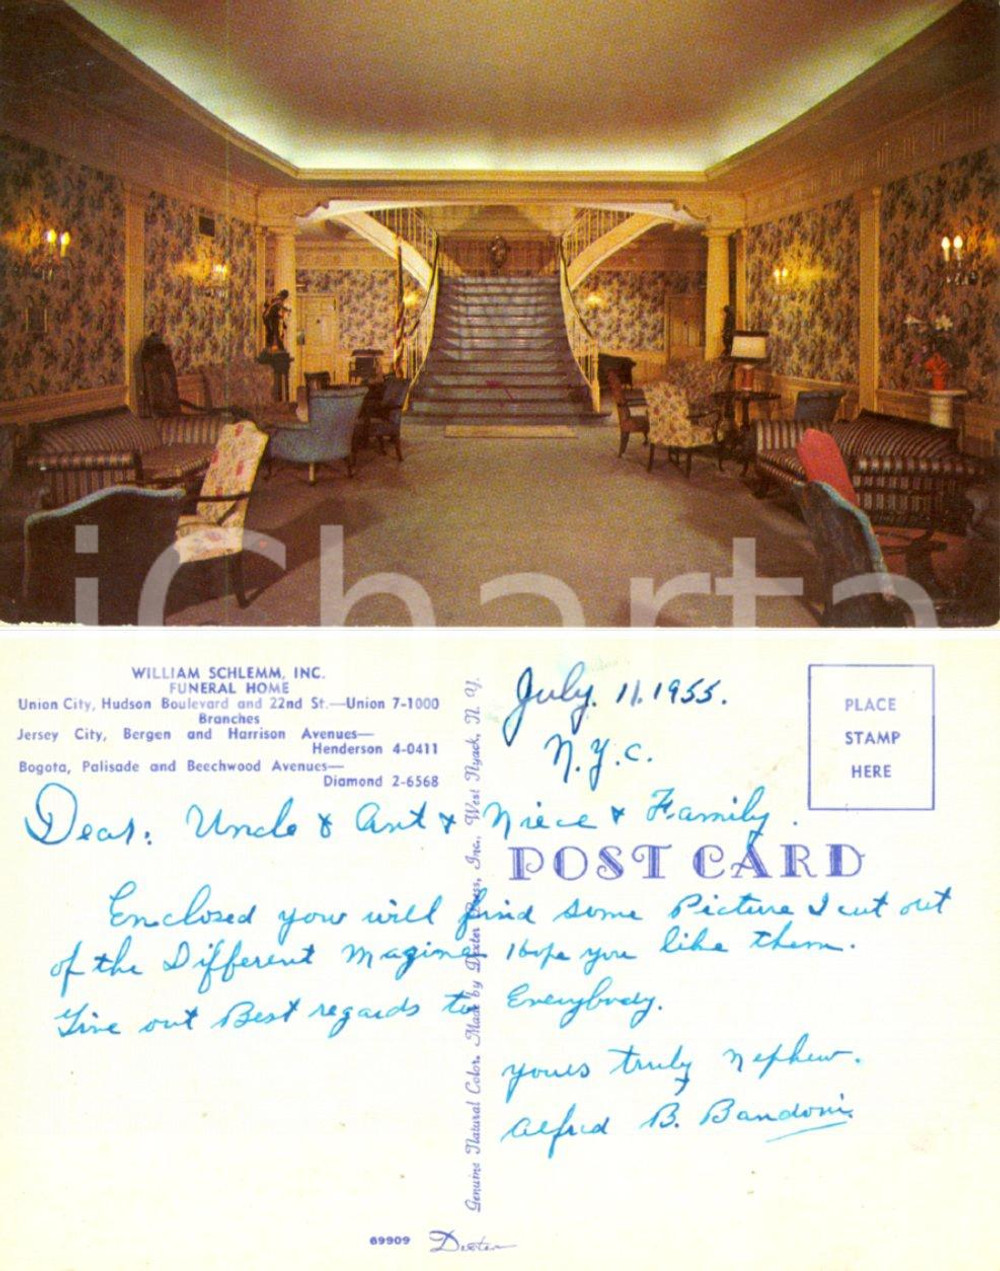 iCharta
WILLIAM SCHLEMM, INC.
FUNERAL HOME
Union City, Hudson Boulevard and 22nd St.—Union 7-1000
Branches
Jersey City, Bergen and Harrison Avenues—
Henderson 4-0411
Bogota, Palisade and Beechwood Avenues—
Diamond 2-6568
July. 11. 1955.
N.Y.C.
PLACE
STAMP
HERE
Dear: Uncle & Ant & Niece & Family.
POST CARD
Enclosed you will find some Picture I cut out
of the Different Magines I hope you like them.
Give out Best regards to Everybody.
yours truly Nephew.
Alfred B. Bandoni.
Genuine Natural Color. Made by Dexter Press, Inc., West Nyack, N. Y.
69909 Dexter